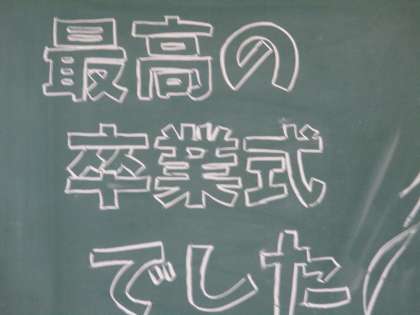 最高の
卒業式
でした